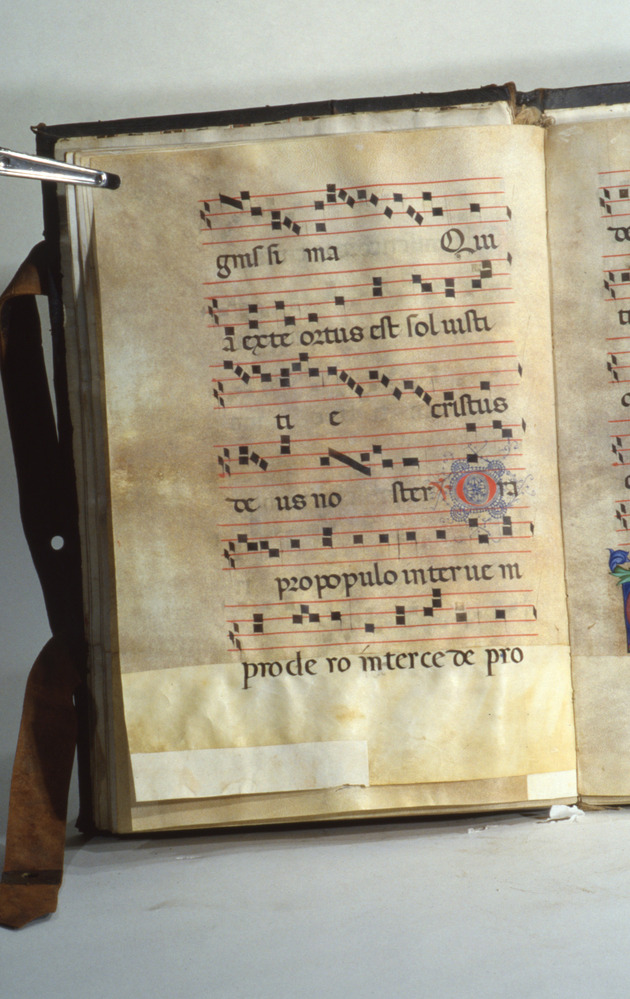 gnis si ma Qui
a exte ortus est sol iusti
ti e cristus
de us no ster ℣ Ora
pro populo interue ni
pro cle ro interce de pro